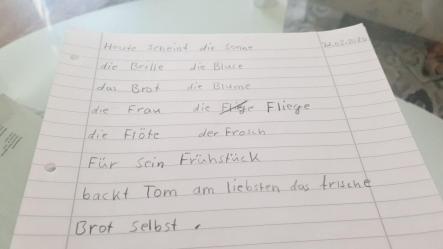 Heute scheint die Sonne
die Brille die Bluse
das Brot die Blume
die Frau die Fliege
die Flöte der Frosch
Für sein Frühstück
backt Tom am liebsten das frische
Brot selbst.